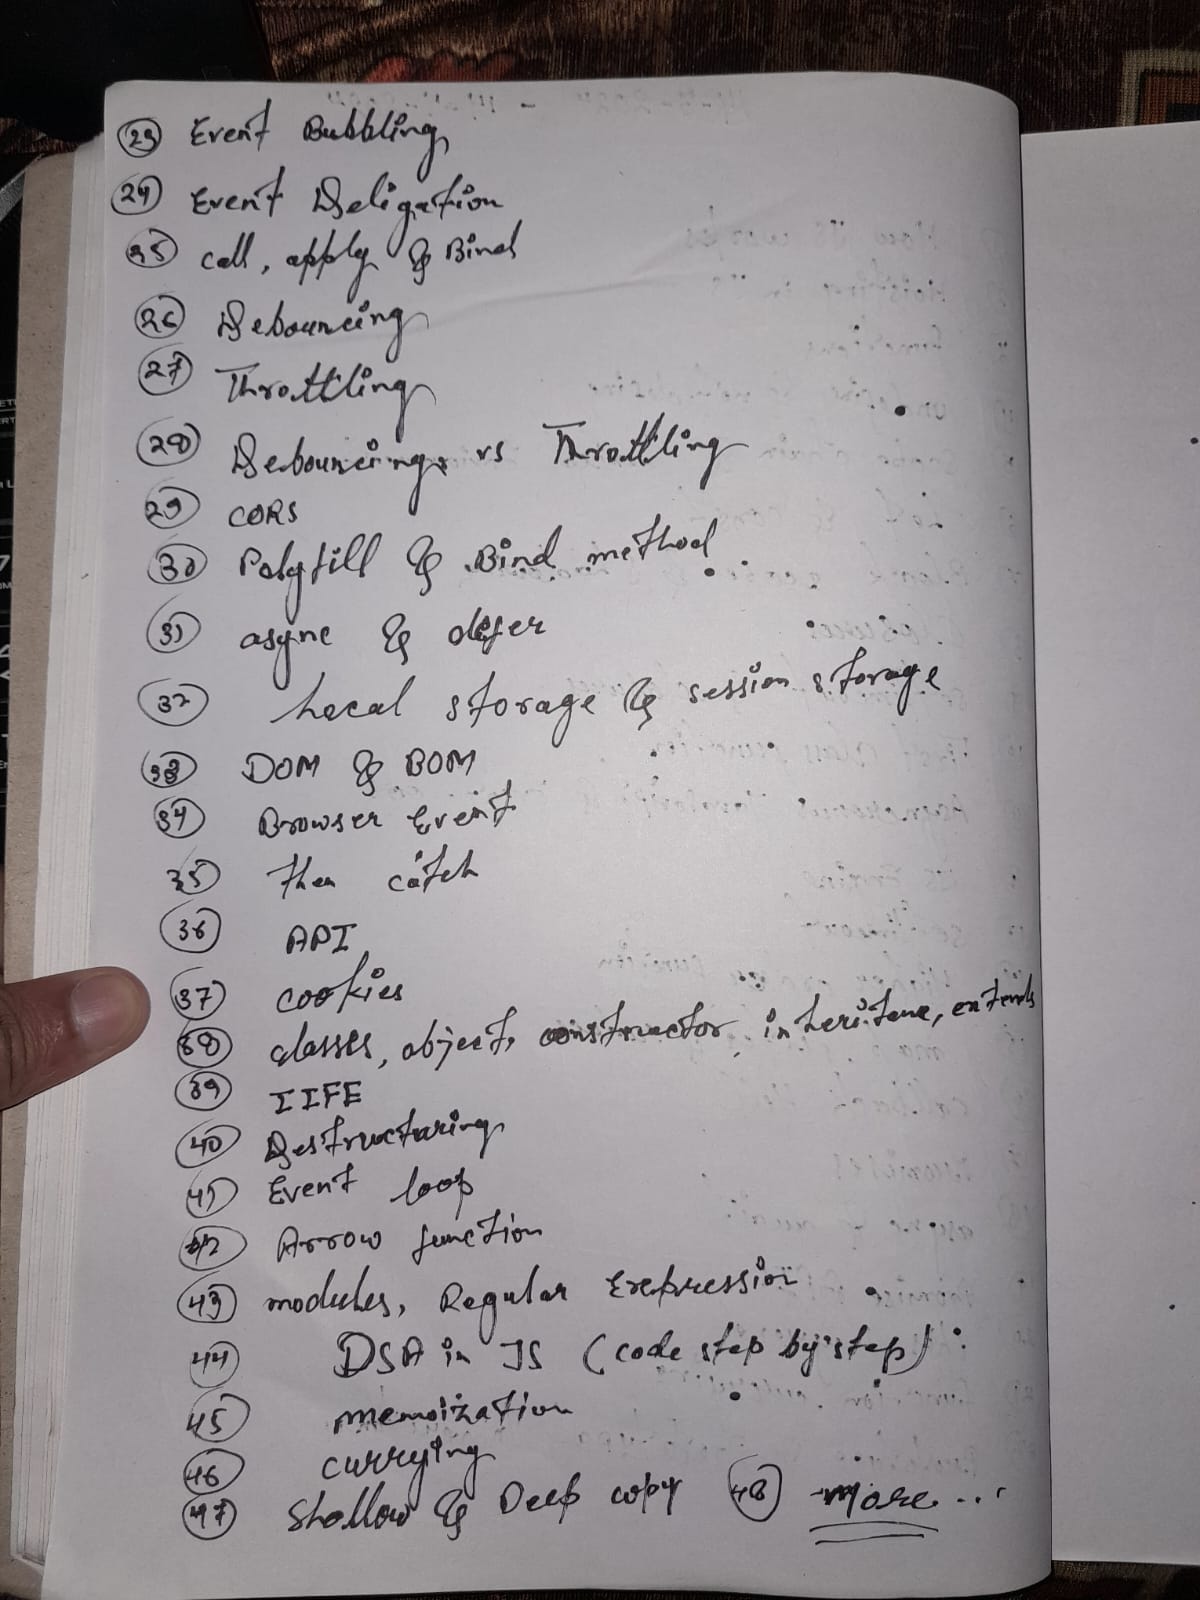 23 Event Bubbling
24 Event Deligation
25 call, apply & Bind
26 Debouncing
27 Throttling
28 Debouncing vs Throttling
29 CORS
30 Polyfill & Bind method
31 async & defer
32 Local storage & session storage
33 DOM & BOM
34 Browser Event
35 then catch
36 API
37 cookies
38 classes, object, constructor, inheritance, extends
39 IIFE
40 Destructuring
41 Event loop
42 Arrow function
43 modules, Regular Expression
44 DSA in JS (code step by step)
45 memoization
46 currying
47 Shallow & Deep copy 48 more...